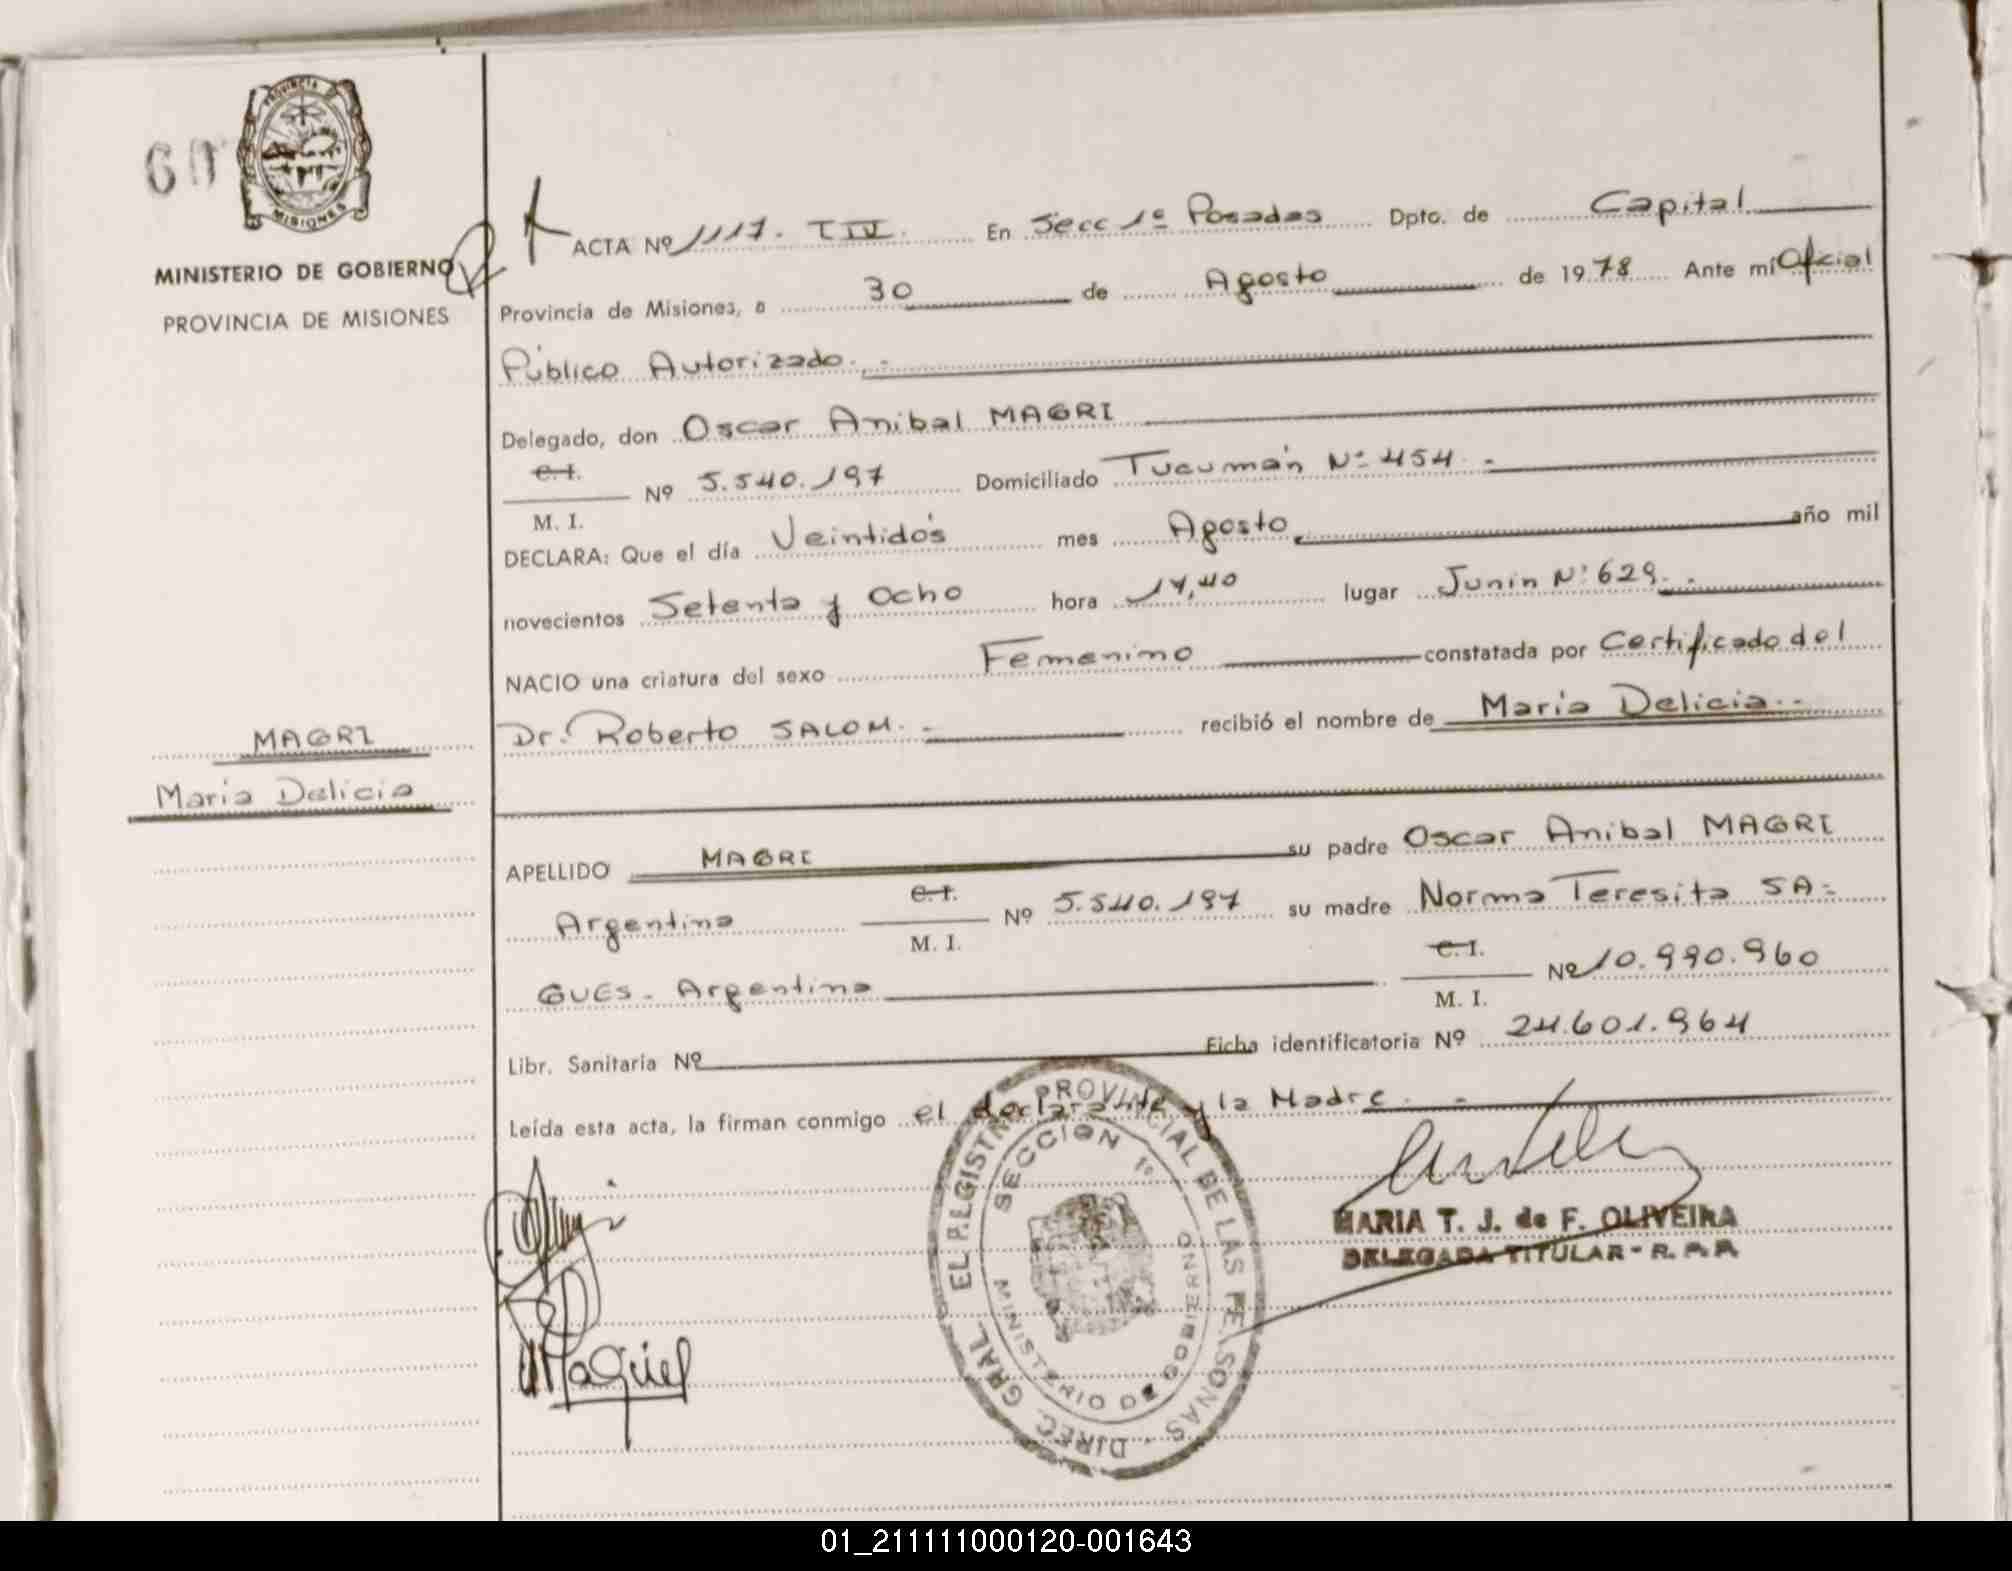 60
PROVINCIA
MISIONES
MINISTERIO DE GOBIERNO
PROVINCIA DE MISIONES
ACTA Nº 1117. T IV. En Secc 1º Posadas Dpto. de Capital
Provincia de Misiones, a 30 de Agosto de 1978 Ante mí Oficial
Público Autorizado.-
Delegado, don Oscar Anibal MAGRI
C. I.
M. I.
Nº 5.540.197 Domiciliado Tucumán Nº 454.-
DECLARA: Que el día Veintidós mes Agosto año mil
novecientos Setenta y Ocho hora 14,40 lugar Junin Nº 629.-
NACIO una criatura del sexo Femenino constatada por Certificado del
Dr. Roberto SALOM.- recibió el nombre de Maria Delicia.-
MAGRI
Maria Delicia
APELLIDO MAGRI su padre Oscar Anibal MAGRI
Argentina C. I. M. I. Nº 5.540.197 su madre Norma Teresita SA=
GUES- Argentina C. I. M. I. Nº 10.990.960
Libr. Sanitaria Nº Ficha identificatoria Nº 24.601.964
Leída esta acta, la firman conmigo el declarante y la Madre.-
DIREC. GRAL. EL REGISTRO PROVINCIAL DE LAS PERSONAS
SECCION 1º
MINISTERIO DE GOBIERNO
MARIA T. J. de F. OLIVEIRA
DELEGADA TITULAR - R. P. P.
01_211111000120-001643